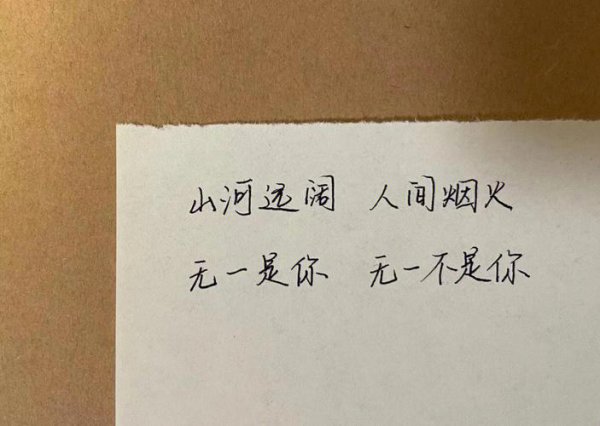 山河远阔 人间烟火
无一是你 无一不是你